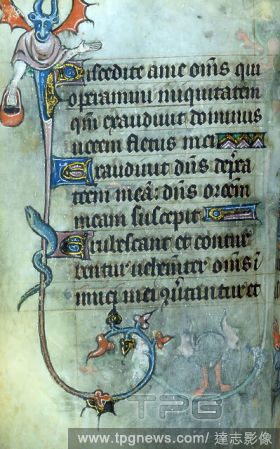 Discedite a me om̄s qui
operamini iniquitatem
qm̄ exaudiuit dominus
uocem fletus mei
Exaudiuit dn̄s dep̄ca
c̄oem meā: dn̄s or̄oem
meam suscepit
Erubescant et contur
bentur uehem̄ter om̄s i
nimici mei ꝯu̾tantur et
TPG
www.tpgnews.com/ 達志影像